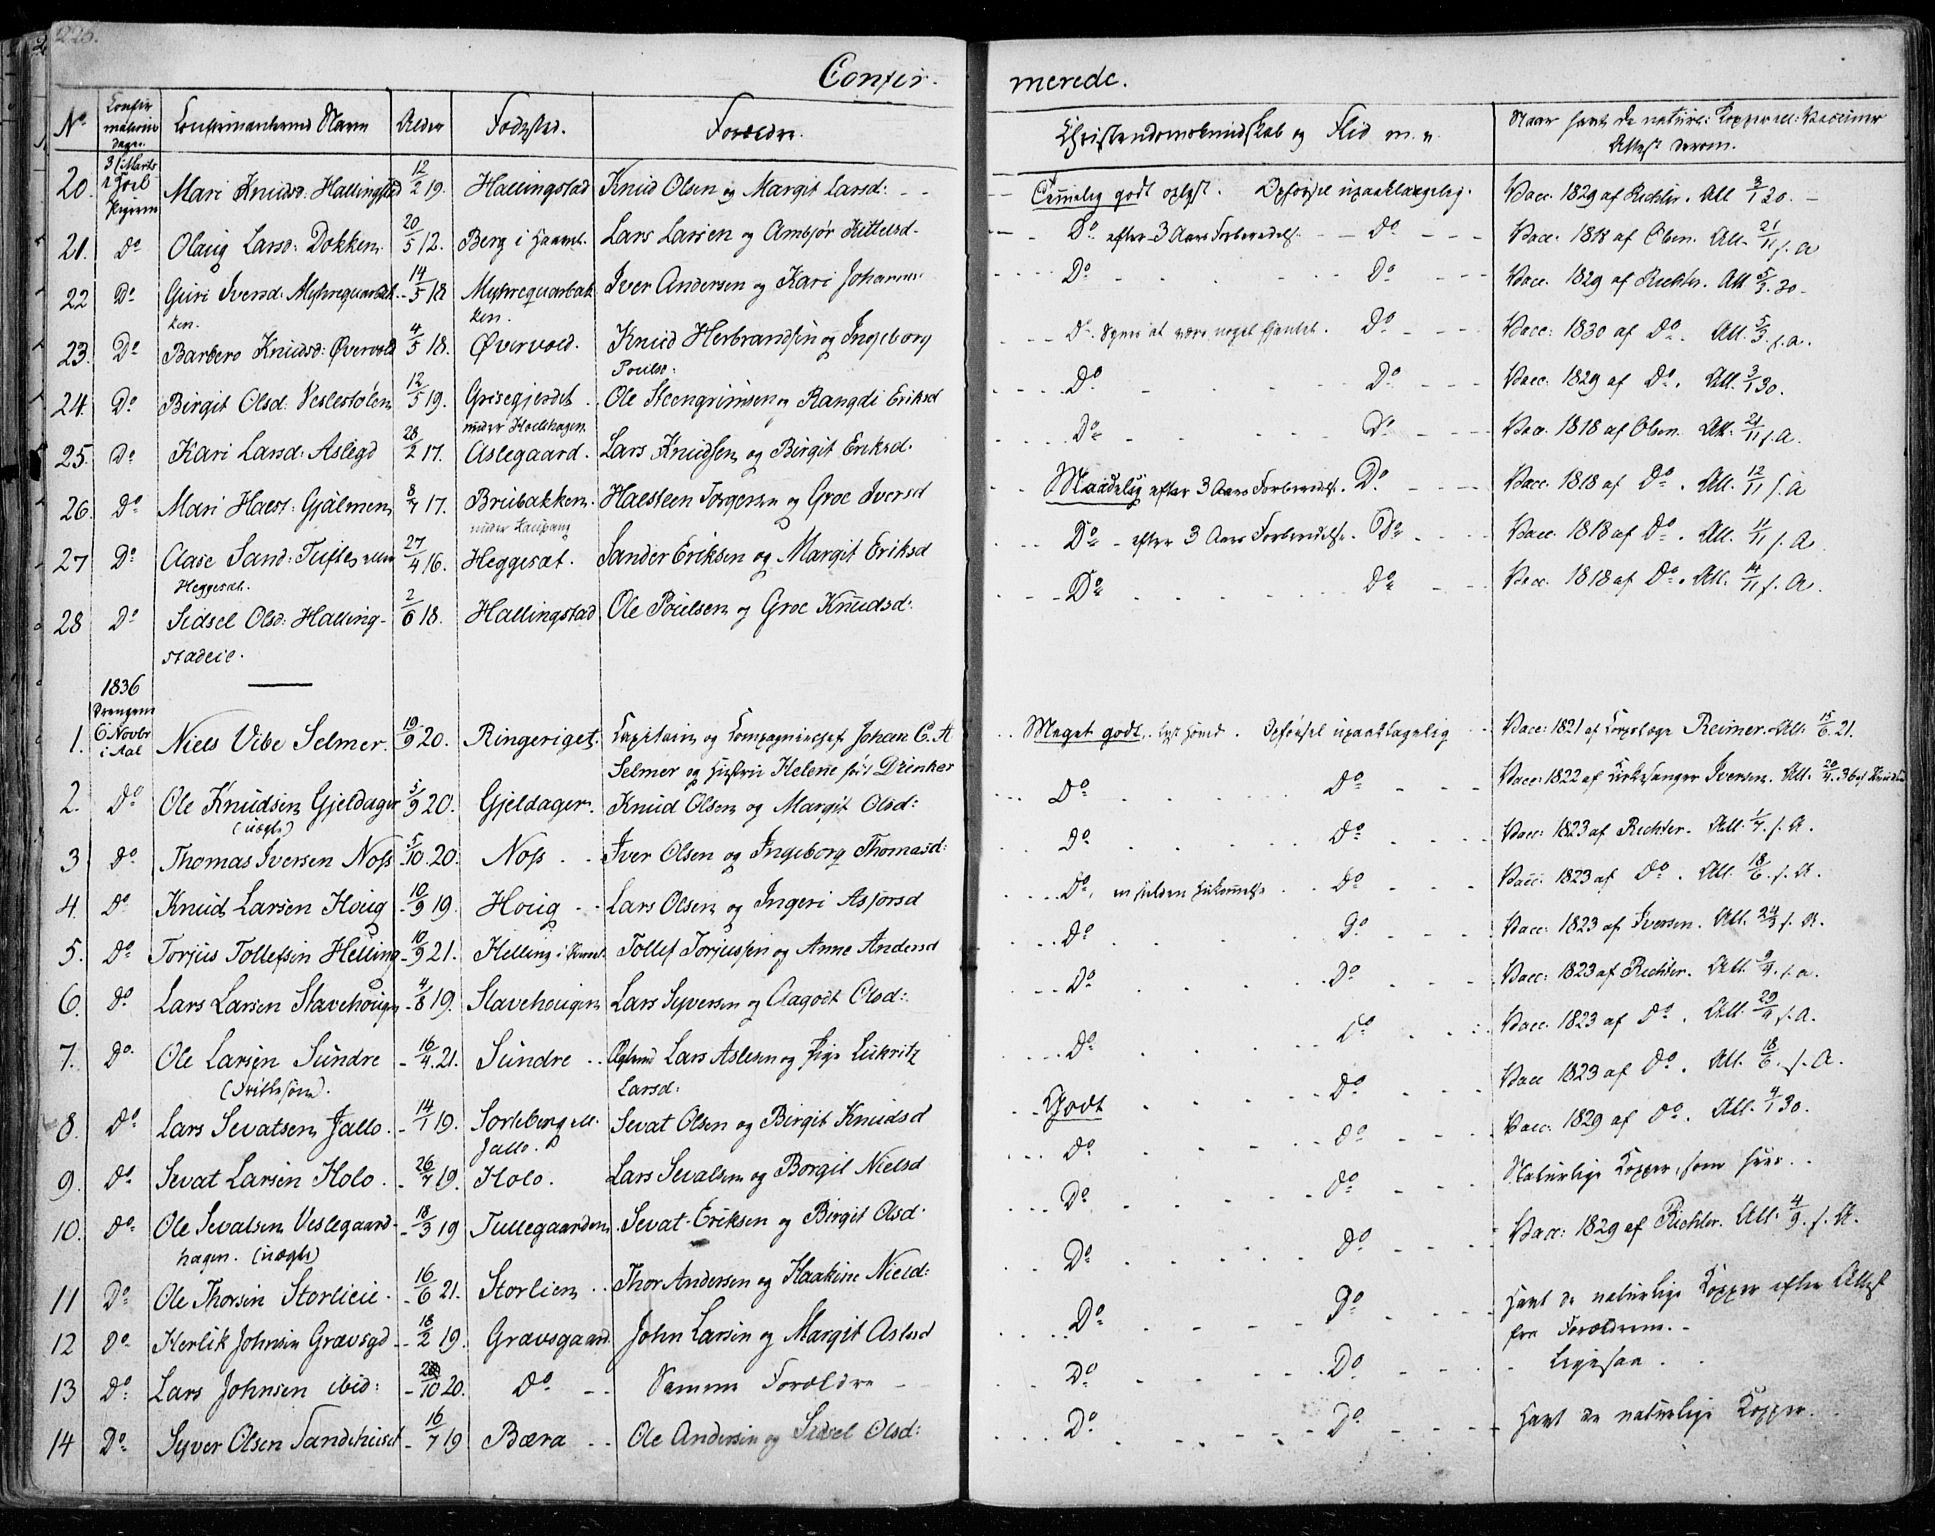 226.
Confir-
merede.
No Confirmations dagen Confirmanternes Navn Alder Fødested. Forældre.
Christendomskundskab og Flid m. v.
Naar havt de naturl: Kopper ell: Vaccineret Attest derom.
20. 31 Marts i Goel Pigerne Mari Knudsd: Hallingstad 12/2 19. Hallingstad Knud Olsen og Margit Larsd: Temelig godt oplyst. Opførsel upaaklagelig. Vacc: 1829 af Richter. Att 3/1 30.
21. Do Olaug Larsd: Dokken 20/5 12. Berg i Lars Larsen og Ambjør Kittelsd. Do efter 3 Aars Forberedelse. Do Vacc: 1818 af Olsen. Att. 21/11 s. A
22 Do Guri Iversd: Myhrequarbak- 14/5 18 Myhrequarbak- Iver Andersen og Kari Johanns Do Do Vacc. 1829 af Richter. Att 5/3 30.
ken. ken.
23. Do Barbero Knudsd: Øvervold 4/5 18. Øvervold. Knud Herbrandsen og Ingeborg Do Synes at være noget Do Vacc: 1830 af Do. Att. 5/3 s. a.
Poulsd:
24. Do Birgit Olsd: Veslestølen 12/5 19. Grisegjerdet Ole Steengrimsen og Rangdi Eriksd Do Do Vacc: 1829 af Do. Att. 3/1 30.
under
25. Do Kari Larsd: Aslegd 28/2 17. Aslegaard. Lars Knudsen og Birgit Eriksd. Do Do Vacc. 1818 af Olsen. Att. 21/11 s. A.
26. Do Mari Halst: Gjälmen 8/7 17. Brubakken. Halsteen Torgersen og Groe Iversd Maadelig efter 3 Aars Forberedelse. Do Vacc. 1818 af Do. Att. 12/11 s. A
under
27 Do Aase Sand: Tufte eller 27/4 16. Heggesat. Sander Eriksen og Margit Eriksd Do efter 3 Aars Forberedelse. Do Vacc: 1818 af Do. Att. 11/11 s. A
Heggesat.
28 Do Sidsel Olsd: Halling- 2/6 18. Hallingstad Ole Poulsen og Groe Knudsd: Do Do Vacc. 1818 af Do. Att. 14/11 s. A.
stadeie.
1836
Drengene
1. 6 Novbr i Aal Niels Vibe Selmer. 19/9 20. Ringeriget. Capitain og Compagniechef Johan C. A Meget godt. Opførsel upaaklagelig Vacc: 1821 af Corpslæge Reimer. Att. 15/6 21.
Selmer og Hustru Helene født Drinker
2. Do Ole Knudsen Gjeldager 5/9 20. Gjeldager. Knud Olsen og Margit Olsd: Do Do Vacc: 1822 af Kirkesanger Iversen. Att. 20/4 36 af
(uægte)
3 Do Thomas Iversen Noss 5/10 20. Noss Iver Olsen og Ingeborg Thomasd: Do Do Vacc: 1823 af Richter. Att. 1/7 s. A.
4. Do Knud Larsen Houg 10/9 19. Houg Lars Olsen og Ingeri Asjorsd Do, en sielden Hukommelse Do Vacc: 1823 af Do. Att. 18/6 s. A.
5. Do Torjus Tollefsen Helling 10/9 21. Helling i Tollef Torjussen og Anne Andersd Do Do Vacc: 1823 af Iversen. Att. 24/3 s. A.
6. Do Lars Larsen Stavehougen 4/8 19. Stavehougen Lars Syversen og Aagodt Olsd: Do Do Vacc: 1823 af Richter. Att. 2/4 s. a.
7. Do. Ole Larsen Sundre 16/4 21. Sundre Lars Aslesen og Pige Lukritz Do Do Vacc. 1823 af Do. Att. 29/4 s. A.
Larsd:
8. Do Lars Sevatsen Jallo. 14/1 19. Sorleberg ell. Sevat Olsen og Birgit Knudsd Godt Do Vacc 1823 af Do. Att. 18/6 s. A.
Jallo.
9. Do Sevat Larsen Holo. 26/7 19. Holo. Lars Sevatsen og Borgil Nielsd Do Do Vacc: 1829 af Do. Att. 4/1 30.
10. Do Ole Sevatsen Veslegaard- 18/3 19 Tullegaarden Sevat Eriksen og Birgit Olsd: Do Do Naturlige Kopper, som sees.
hagen. (uægte)
11 Do Ole Thorsen Storlieie 16/6 21. Storlien Thor Andersen og Haakine Nield: Do Do Vacc: 1829 af Richter. Att. 4/9 s. A.
12 Do Herlik Johnsen Gravsgd 18/2 19. Gravsgaard. John Larsen og Margit Aslesd Do Do Havt de naturlige Kopper efter Attest
fra Forældrene.
13 Do Lars Johnsen ibid: /10 20. Do Samme Forældre Do Do Ligesaa.
14 Do Syver Olsen Sandehuset 16/7 19 Bæra Ole Andersen og Sidsel Olsd: Do Do Havt de naturlige Kopper.